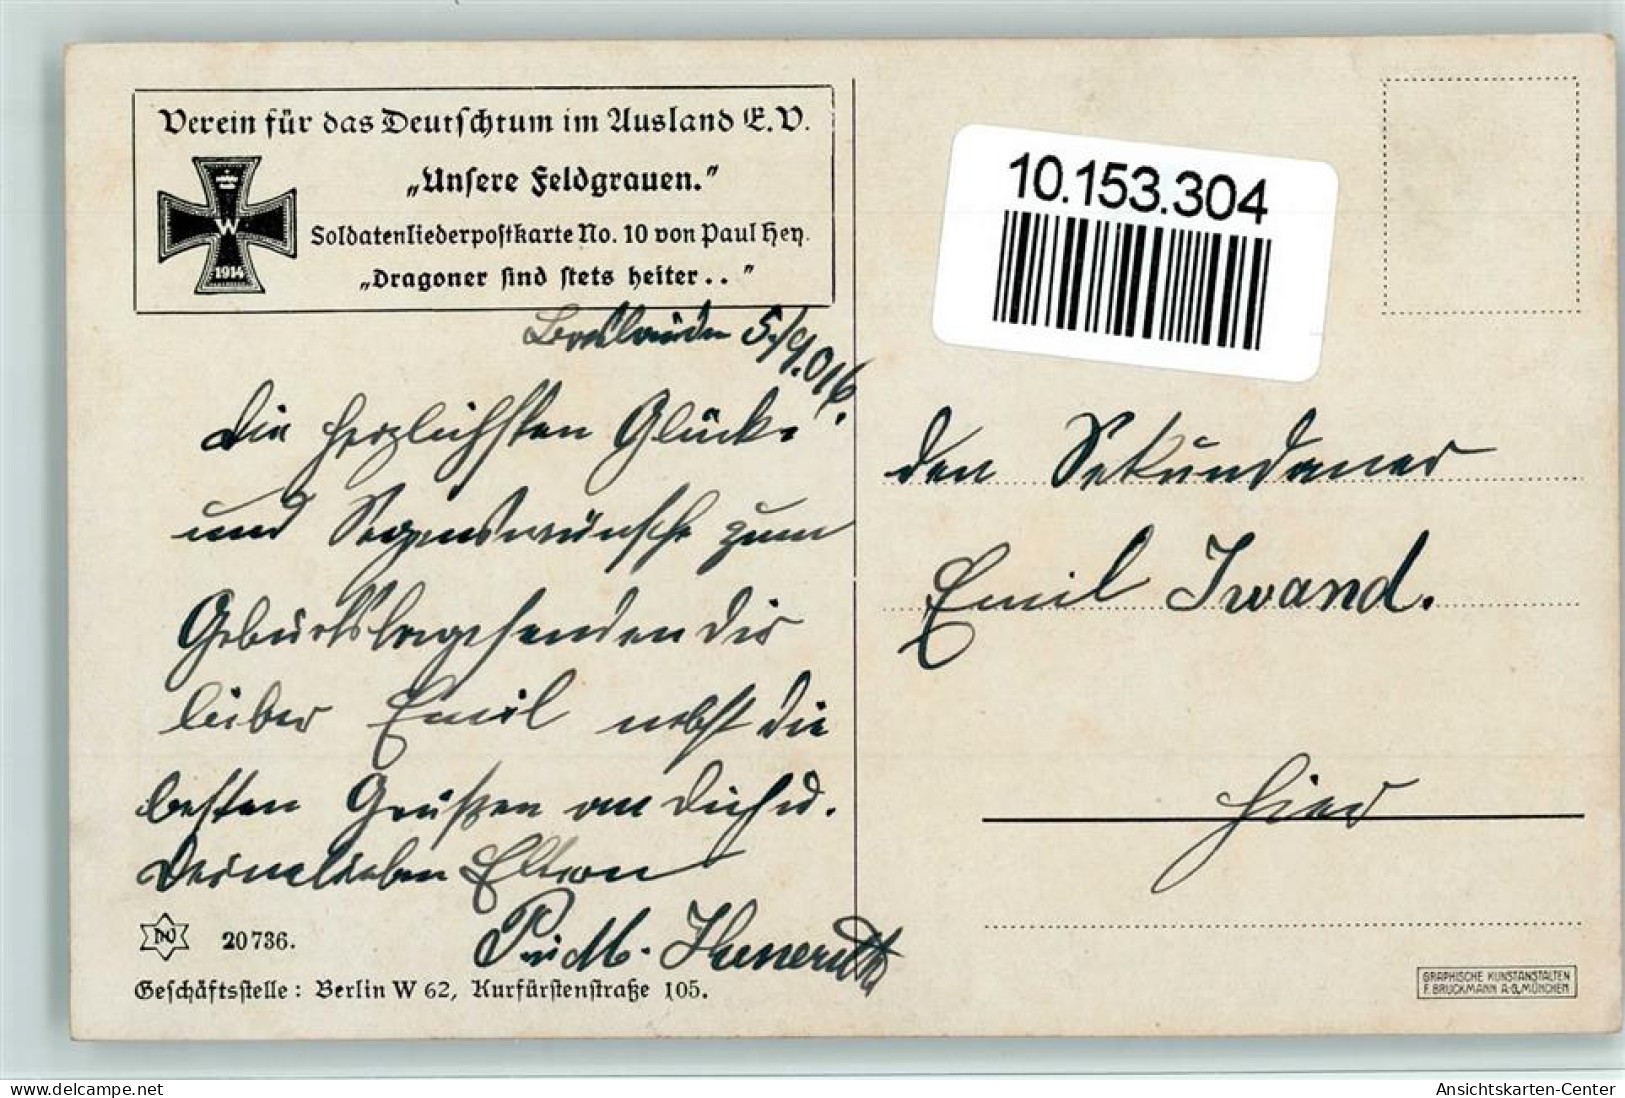 Verein für das Deutschtum im Ausland E.V.
„Unsere Feldgrauen."
Soldatenliederpostkarte No. 10 von Paul Hey.
„Dragoner sind stets heiter.. "
W
1914
5./9.016.
Die herzlichsten Glück-
und Segenswünsche zum
Geburtstage senden Dir
lieber Emil nebst die
besten Grüßen an Dich u.
Deine lieben Eltern
P. u. M.
20736.
Geschäftsstelle: Berlin W 62, Kurfürstenstraße 105.
10.153.304
den Sekundaner
Emil Iwand.
hier
GRAPHISCHE KUNSTANSTALTEN
F. BRUCKMANN A.-G. MÜNCHEN
delcampe.net
Ansichtskarten-Center